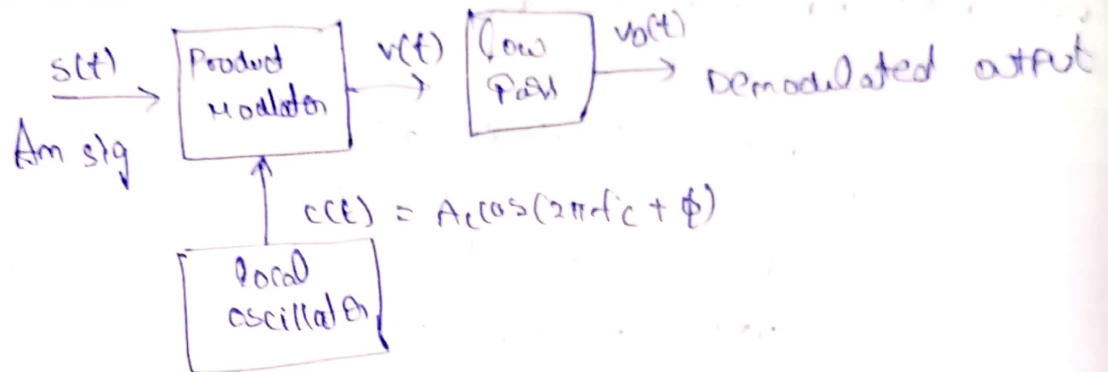 s(t)
Am sig
Product
Modulator
v(t)
Low
Pass
vo(t)
Demodulated output
c(t) = Ac cos(2πfc + ϕ)
local
oscillator